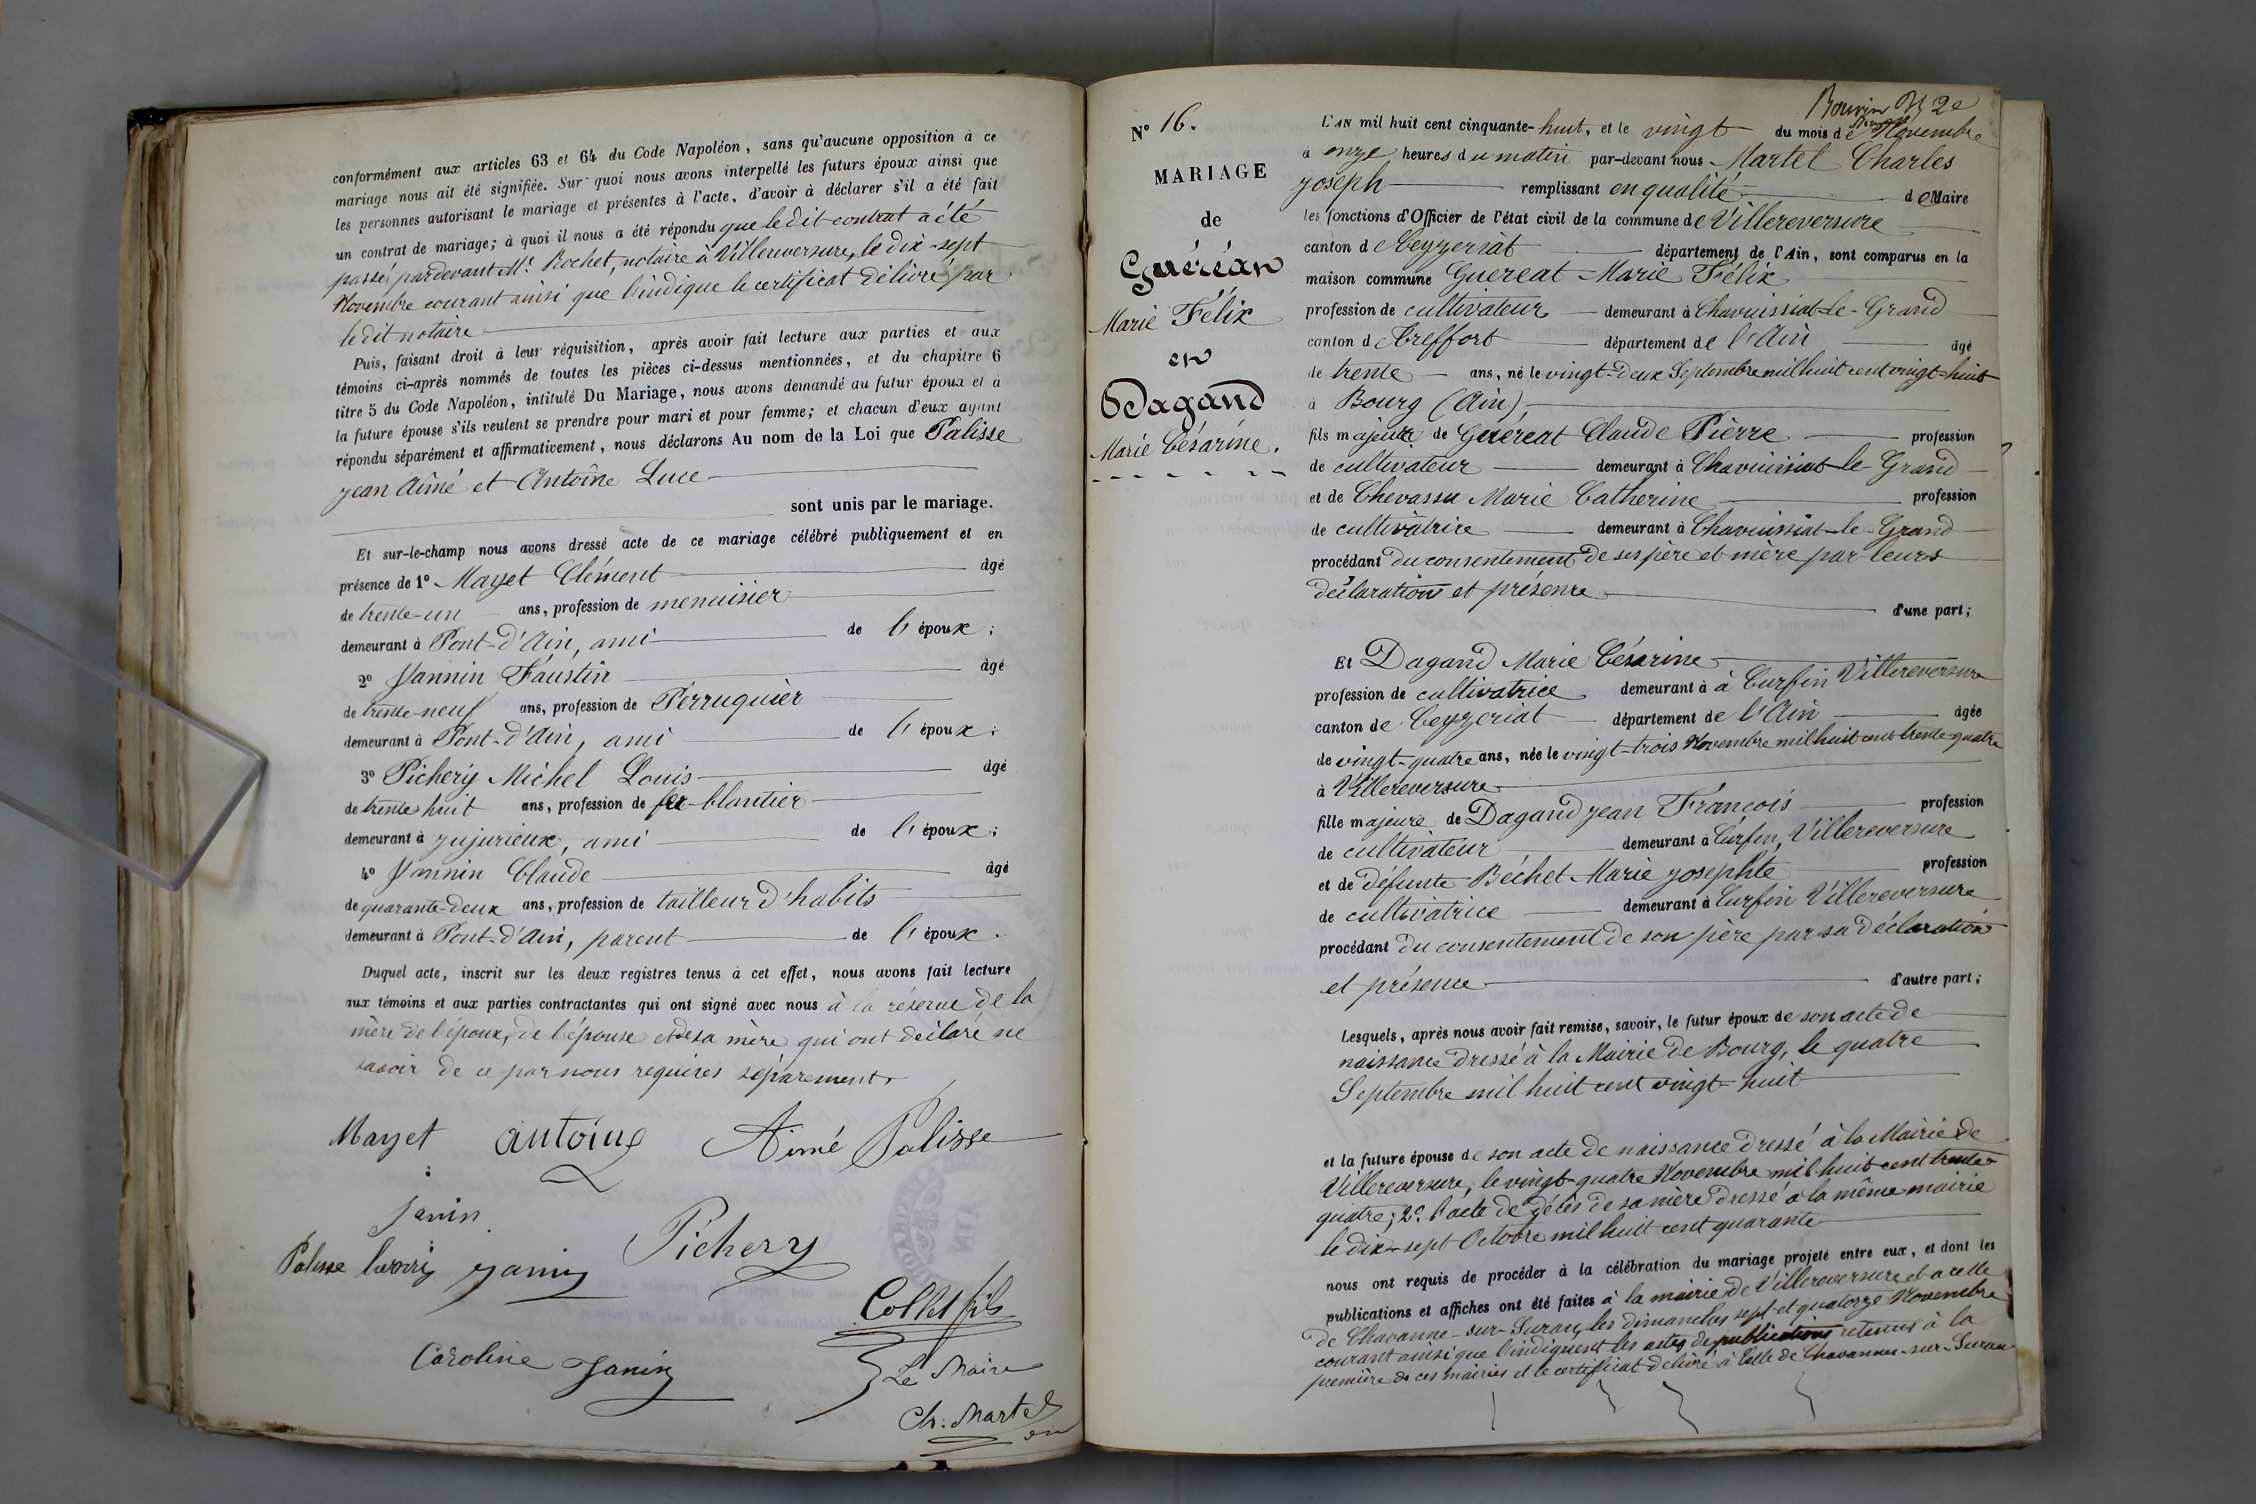 conformément aux articles 63 et 64 du Code Napoléon, sans qu'aucune opposition à ce
mariage nous ait été signifiée. Sur quoi nous avons interpellé les futurs époux ainsi que
les personnes autorisant le mariage et présentes à l'acte, d'avoir à déclarer s'il a été fait
un contrat de mariage; à quoi il nous a été répondu que le dit contrat a été
passé pardevant Me Rochet, notaire à Villereversure, le dix-sept
Novembre courant ainsi que l'indique le certificat délivré par
le dit notaire
Puis, faisant droit à leur réquisition, après avoir fait lecture aux parties et aux
témoins ci-après nommés de toutes les pièces ci-dessus mentionnées, et du chapitre 6
titre 5 du Code Napoléon, intitulé Du Mariage, nous avons demandé au futur époux et à
la future épouse s'ils veulent se prendre pour mari et pour femme; et chacun d'eux ayant
répondu séparément et affirmativement, nous déclarons Au nom de la Loi que Palisse
Jean Aimé et Antoine Luce
sont unis par le mariage.
Et sur-le-champ nous avons dressé acte de ce mariage célébré publiquement et en
présence de 1° Mayet Clément âgé
de trente-un ans, profession de menuisier
demeurant à Pont-d'Ain, ami de l'époux;
2° Jannin Faustin âgé
de trente-neuf ans, profession de Perruquier
demeurant à Pont-d'Ain, ami de l'époux;
3° Pichery Michel Louis âgé
de trente huit ans, profession de fer-blantier
demeurant à Jujurieux, ami de l'époux;
4° Jannin Claude âgé
de quarante-deux ans, profession de tailleur d'habits
demeurant à Pont-d'Ain, parent de l'époux.
Duquel acte, inscrit sur les deux registres tenus à cet effet, nous avons fait lecture
aux témoins et aux parties contractantes qui ont signé avec nous à la réserve de la
mère de l'époux, de l'épouse et de sa mère qui ont déclaré ne
savoir de ce par nous requises séparement.
Mayet antoine Aimé Palisse
janin
Palisse janin Pichery
Collet fils
Caroline Janin
Le Maire
Ch. Martel
Bouvin 2e
N° 16.
MARIAGE
de
Guéréàn
Marie Félix
en
Dagand
Marie Césarine.
L'AN mil huit cent cinquante-huit, et le vingt du mois de Novembre
à onze heures du matin par-devant nous Martel Charles
Joseph remplissant en qualité de Maire
les fonctions d'Officier de l'état civil de la commune de Villereversure
canton de Ceyzeriat département de l'Ain, sont comparus en la
maison commune Guéréat Marie Félix
profession de cultivateur demeurant à Chavuissiat-le-Grand
canton de Treffort département de l'Ain âgé
de trente ans, né le vingt-deux Septembre mil huit cent vingt-huit
à Bourg (Ain)
fils majeur de Guéréat Claude Pierre profession
de cultivateur demeurant à Chavuissiat-le Grand
et de Chevassu Marie Catherine profession
de cultivatrice demeurant à Chavuissiat-le-Grand
procédant du consentement de ses père et mère par leurs
déclaration et présence d'une part;
Et Dagand Marie Césarine
profession de cultivatrice demeurant à à Curfin Villereversure
canton de Ceyzeriat département de l'Ain âgée
de vingt-quatre ans, née le vingt-trois Novembre mil huit cent trente-quatre
à Villereversure
fille majeure de Dagand Jean François profession
de cultivateur demeurant à Curfin, Villereversure
et de défunte Béchet Marie Josephte profession
de cultivatrice demeurant à Curfin Villereversure
procédant du consentement de son père par sa déclaration
et présence d'autre part;
Lesquels, après nous avoir fait remise, savoir, le futur époux de son acte de
naissance dressé à la Mairie de Bourg, le quatre
Septembre mil huit cent vingt-huit
et la future épouse de son acte de naissance dressé à la Mairie de
Villereversure, le vingt-quatre Novembre mil huit cent trente
quatre; 2° l'acte de décès de sa mère dressé à la même mairie
le dix-sept Octobre mil huit cent quarante
nous ont requis de procéder à la célébration du mariage projeté entre eux, et dont les
publications et affiches ont été faites à la mairie de Villereversure et a celle
de Chavanne-sur-Suran, les dimanches sept et quatorze Novembre
courant ainsi que l'indiquent les actes de publications retenus à la
première de ces mairies et le certificat délivré à celle de Chavannes-sur-Suran